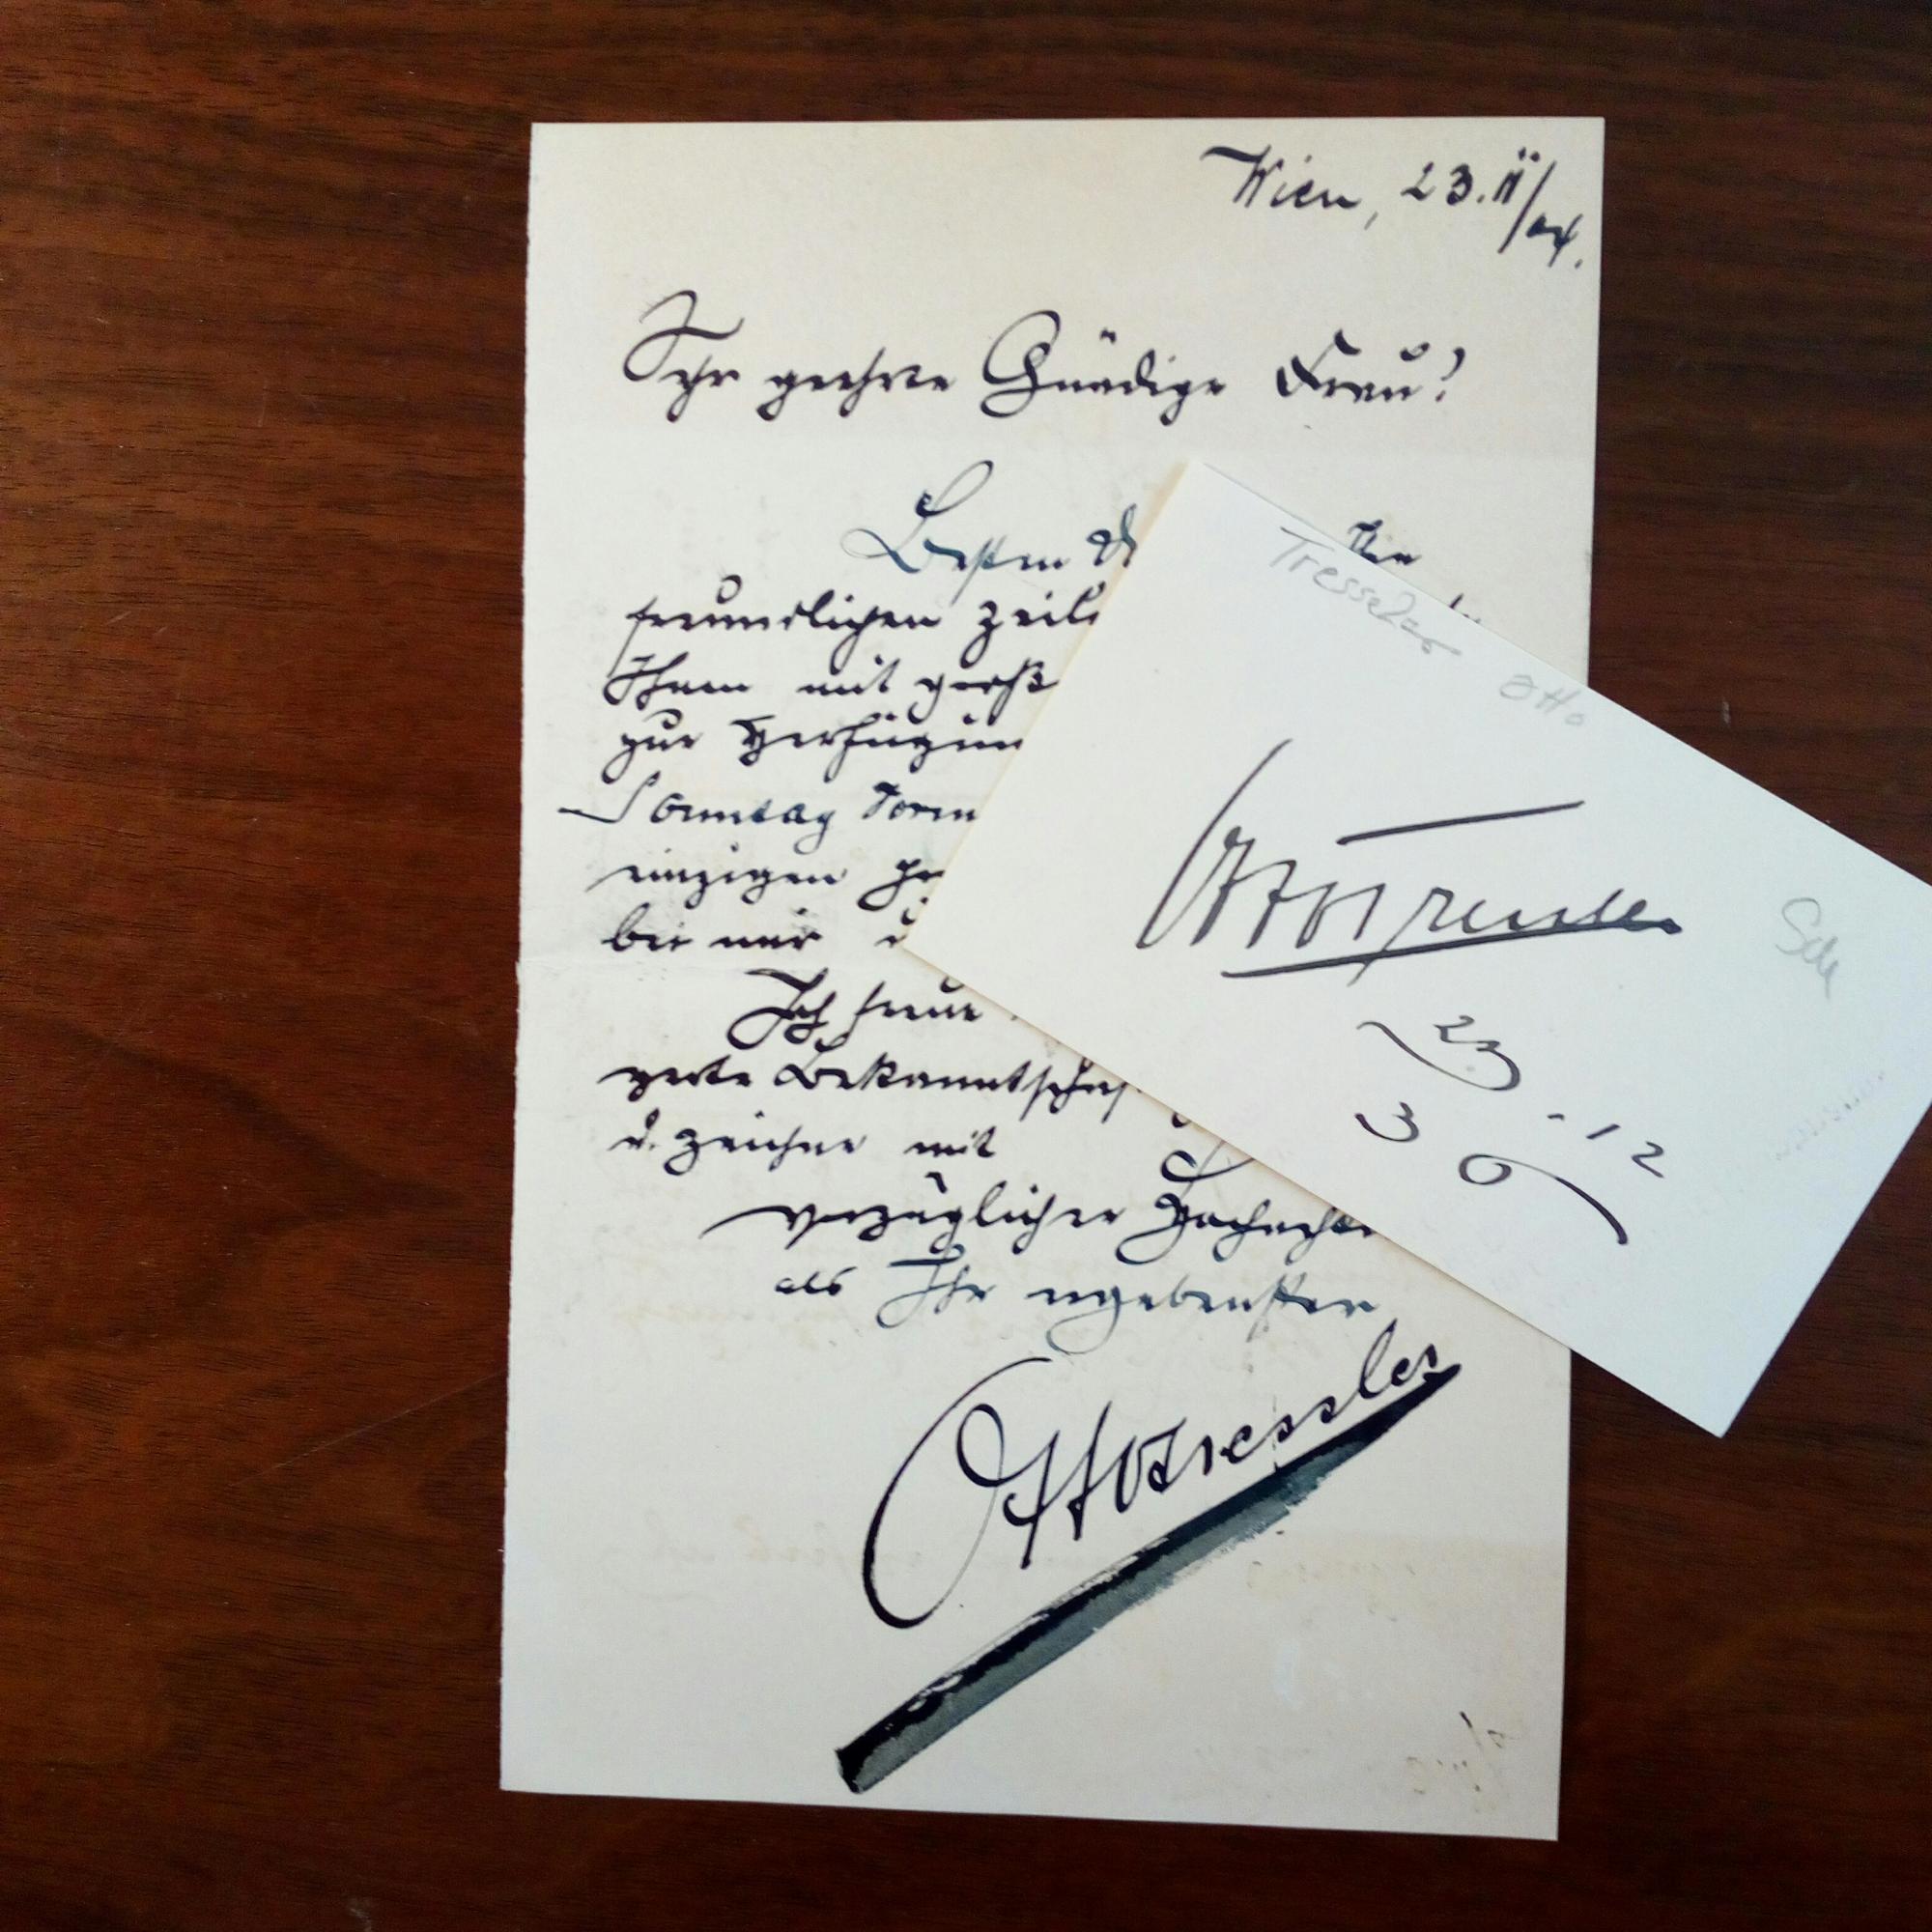 Wien, 23.II/04.
Sehr geehrte Gnädige Frau!
Besten D
freundlichen Zeile
Ihnen mit größt
zur Verfügun
Sonntag Vorm
einzigen
bei mir
Ich freue
Bekanntschaf
u. zeichne mit
vorzüglicher Hochachtu
als Ihr ergebenster
Otto Tressler
Tressler Otto
Otto Tressler
Sch
23
-12
36